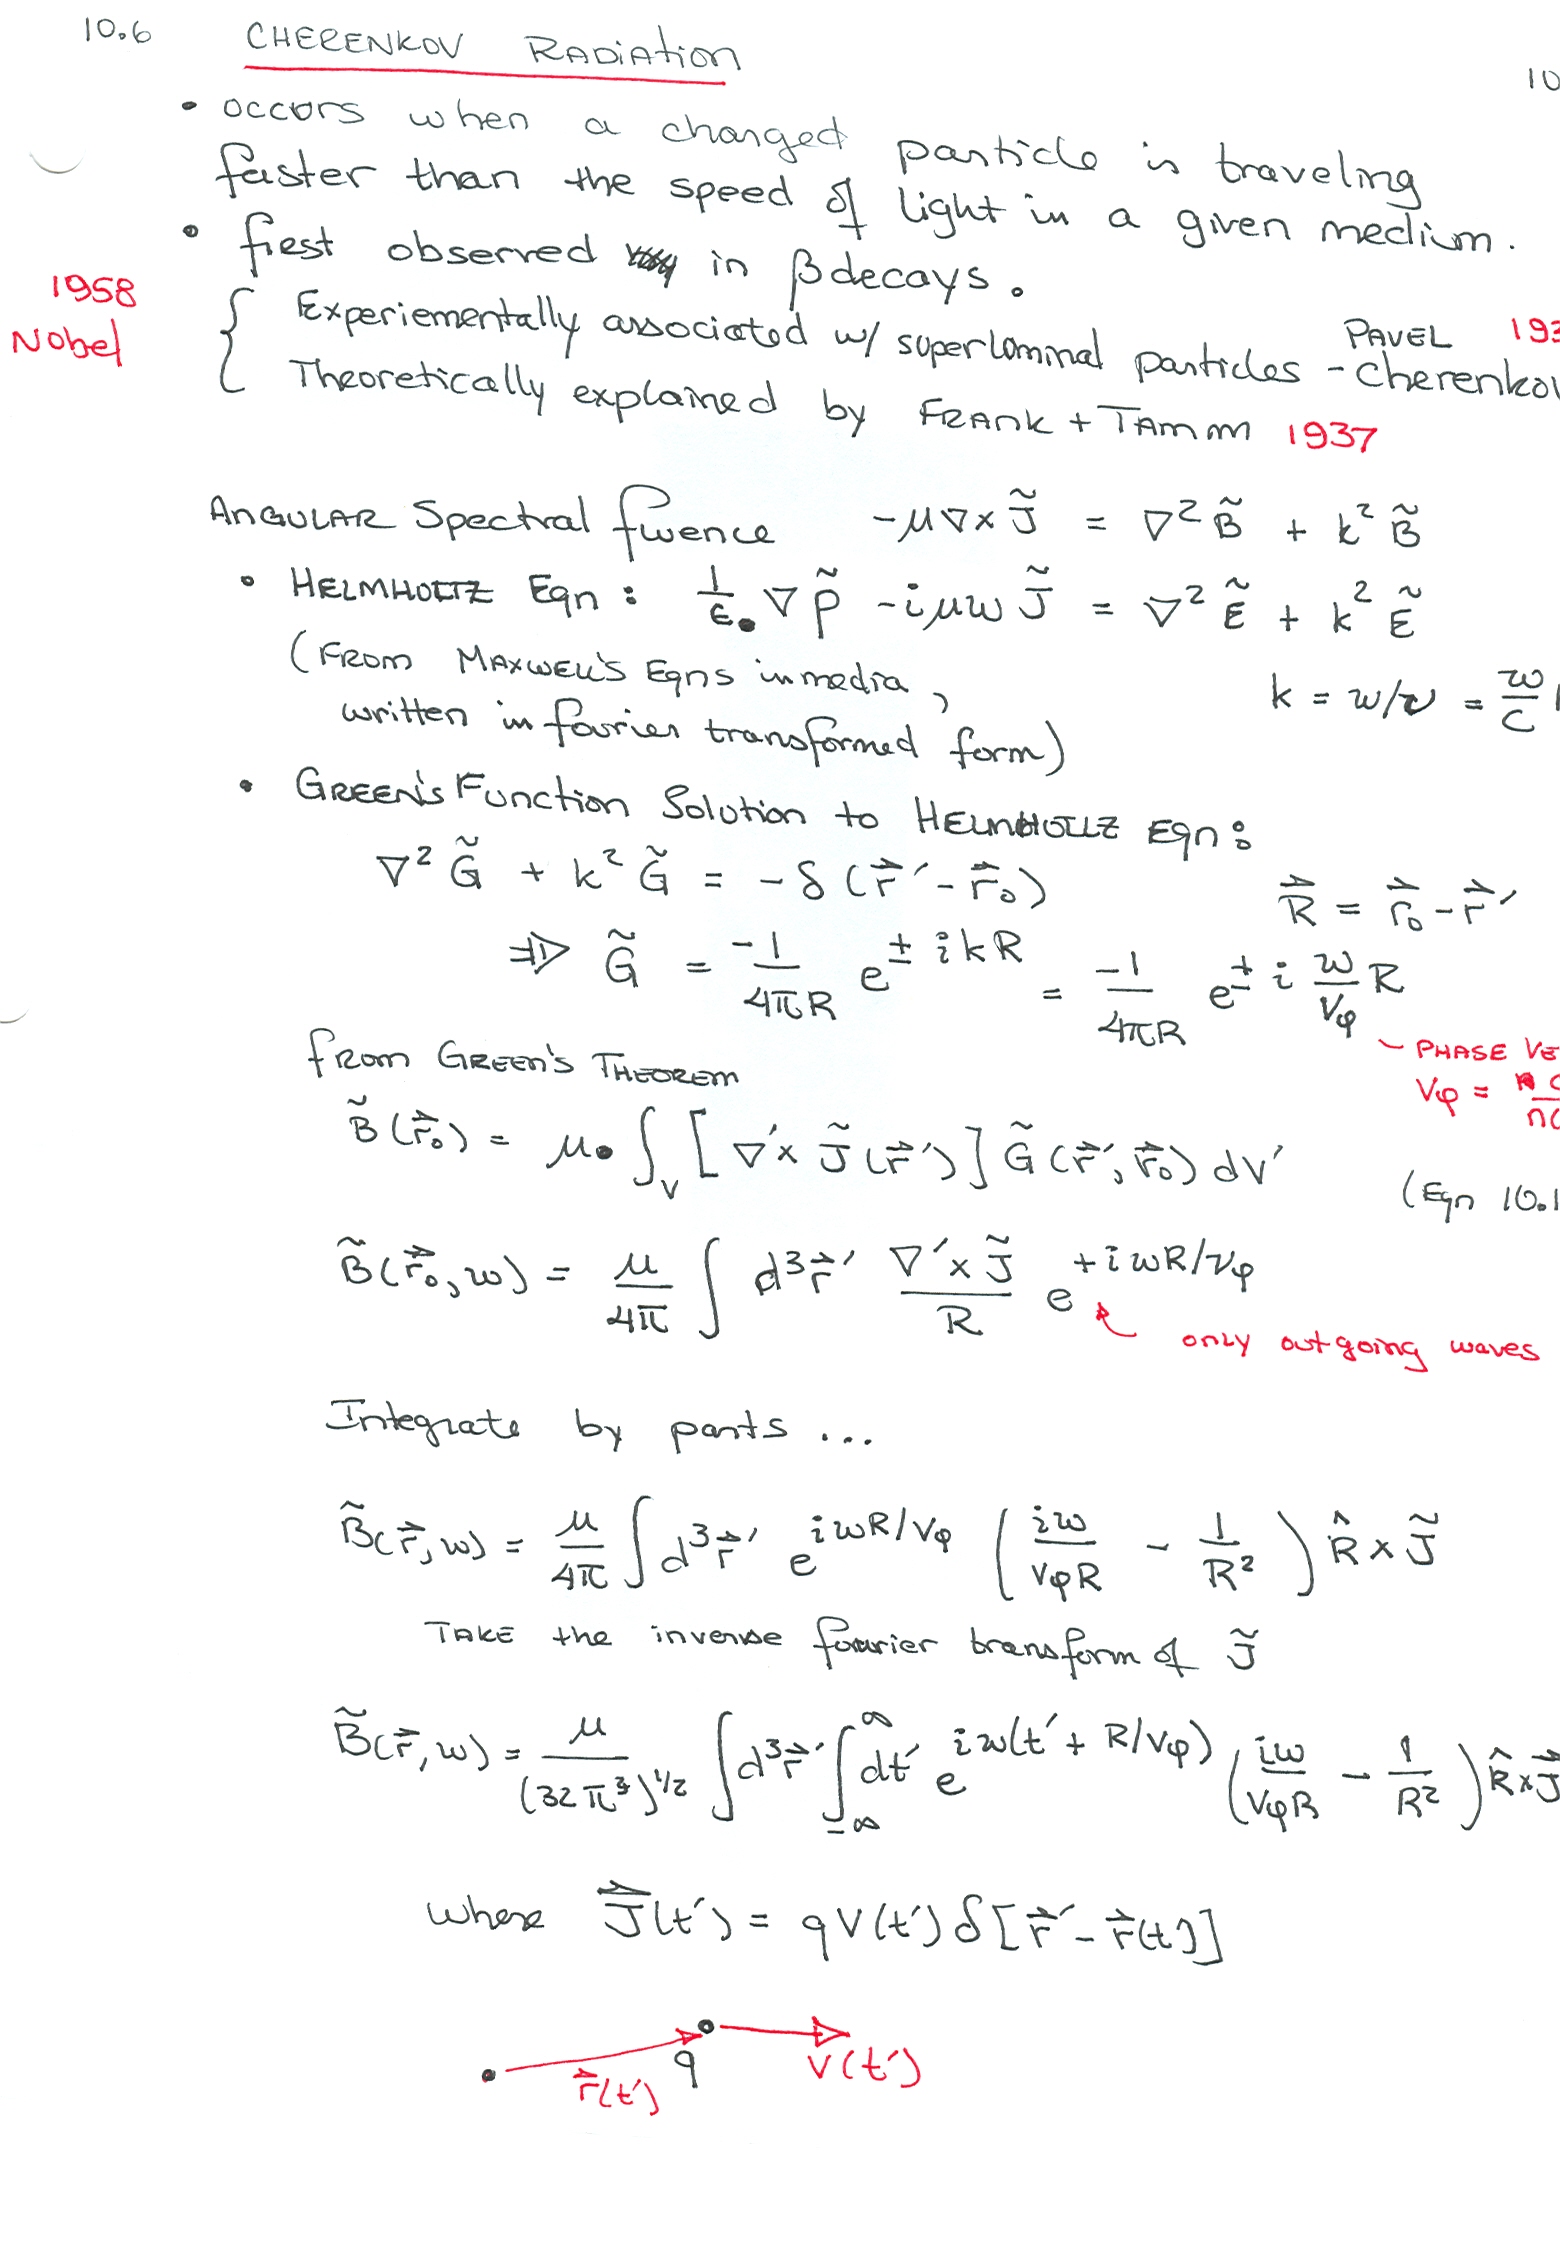 10.6 CHERENKOV RADIATION
10
• occurs when a charged particle is traveling
faster than the speed of light in a given medium.
• first observed in β decays.
1958
Nobel
Experiementally associated w/ superluminal particles - Cherenkov
PAVEL 193
Theoretically explained by FRANK + TAMM 1937
ANGULAR Spectral fluence -μ∇×J̃ = ∇²B̃ + k²B̃
• HELMHOLTZ Eqn: 1/ε ∇ρ̃ - iμωJ̃ = ∇²Ẽ + k²Ẽ
(FROM MAXWELL'S Eqns in media,
written in fourier transformed form)
k = ω/v = ω/c
• GREEN'S Function Solution to HELMHOLTZ Eqn:
∇²G̃ + k²G̃ = -δ(r⃗′ - r⃗₀)
R⃗ = r⃗₀ - r⃗′
⇒ G̃ = -1/4πR e^(± ikR) = -1/4πR e^(± i ω/Vφ R)
- PHASE VE
Vφ = c/n(
from GREEN'S THEOREM
B̃(r⃗₀) = μ ∫_V [∇′× J̃(r⃗′)] G̃(r⃗′, r⃗₀) dV′
(Eqn 10.1
B̃(r⃗₀, ω) = μ/4π ∫ d³r⃗′ (∇′× J̃)/R e^(+iωR/vφ)
only outgoing waves
Integrate by parts ...
B̃(r⃗, ω) = μ/4π ∫ d³r⃗′ e^(iωR/Vφ) (iω/VφR - 1/R²) R̂ × J̃
TAKE the inverse fourier transform of J̃
B̃(r⃗, ω) = μ/(32π³)^(1/2) ∫ d³r⃗′ ∫_-∞^∞ dt′ e^(iω(t′ + R/Vφ)) (iω/VφR - 1/R²) R̂ × J⃗
where J⃗(t′) = qV(t′) δ[r⃗′ - r⃗(t)]
r⃗(t′) q V(t′)